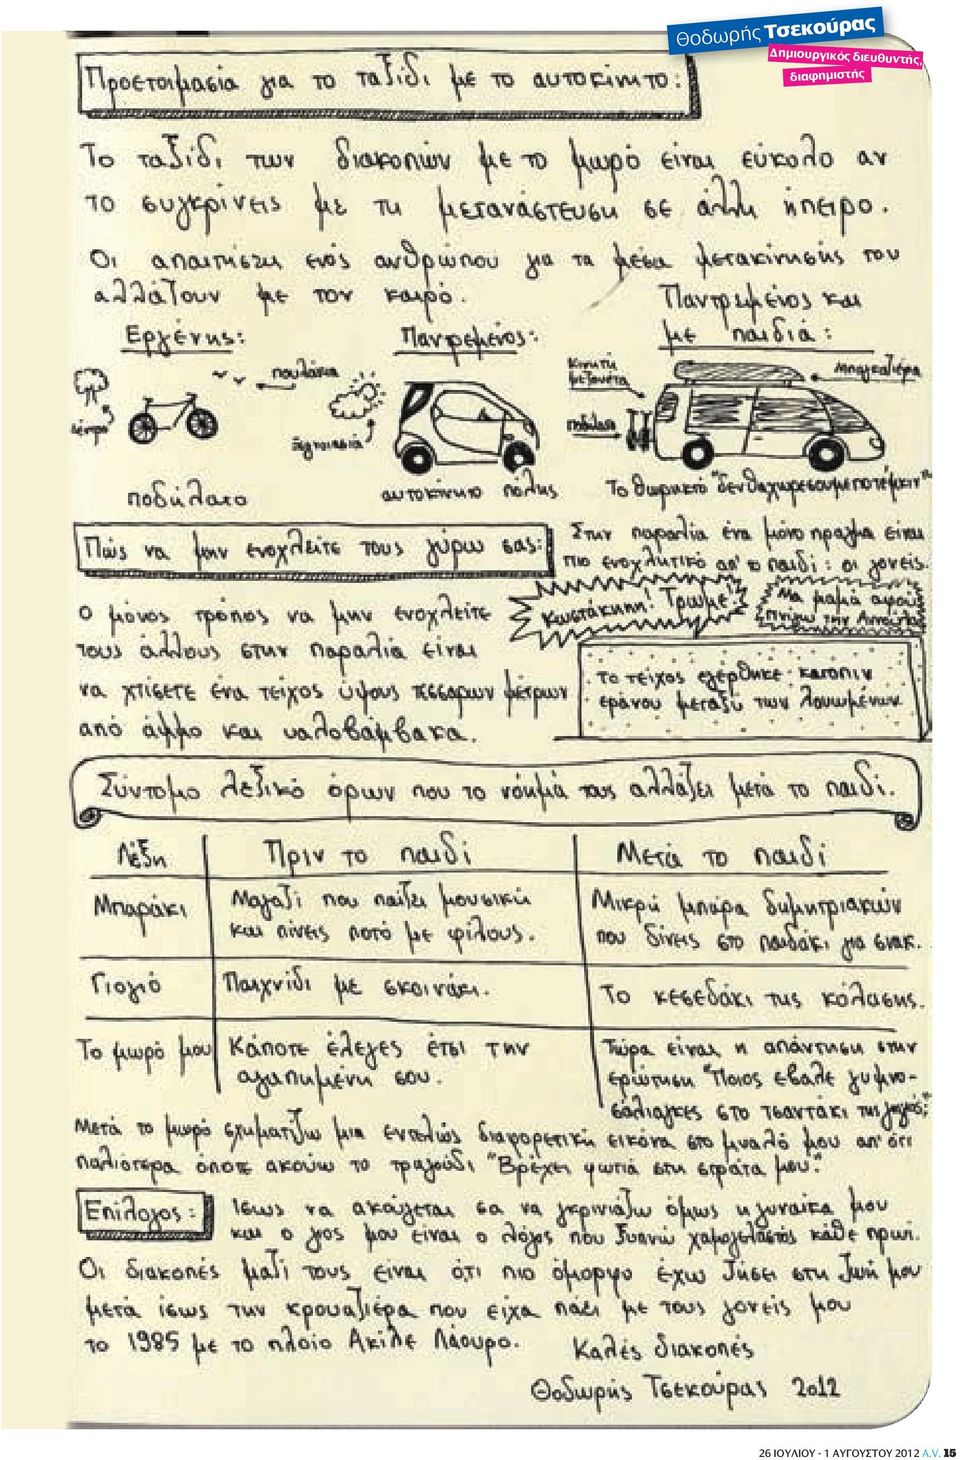 Θοδωρής Τσεκούρας
Δημιουργικός διευθυντής,
διαφημιστής
Προετοιμασία για το ταξίδι με το αυτοκίνητο:
Το ταξίδι των διακοπών με το μωρό είναι εύκολο αν
το συγκρίνεις με τη μετανάστευση σε άλλη ήπειρο.
Οι απαιτήσεις ενός ανθρώπου για τα μέσα μετακίνησής του
αλλάζουν με τον καιρό.
Εργένης:
Παντρεμένος:
Παντρεμένος και
με παιδιά:
πουλάκια
δέντρο
ξεγνοιασιά
κινητή
μεζονέτα
ποδήλατα
μπαγκαζιέρα
ποδήλατο
αυτοκίνητο πόλης
Το θωρηκτό "δενθαχωρεσουμεποτέμκιν"
Πώς να μην ενοχλείτε τους γύρω σας:
Στην παραλία ένα μόνο πραγμα είναι
πιο ενοχλητικό απ' το παιδί: οι γονείς.
Ο μόνος τρόπος να μην ενοχλείτε
τους άλλους στην παραλία είναι
να χτίσετε ένα τείχος ύψους τεσσάρων μέτρων
από άμμο και υαλοβάμβακα.
Κωστάκηηη! Τρωμε!
Μα μαμά αφού
πνίγω την Αννούλα
Το τείχος εγέρθηκε κατόπιν
εράνου μεταξύ των λουωμένων.
Σύντομο λεξικό όρων που το νόημά τους αλλάζει μετά το παιδί.
Λέξη Πριν το παιδί Μετά το παιδί
Μπαράκι
Μαγαζί που παίζει μουσική
και πίνεις ποτό με φίλους.
Μικρή μπάρα δημητριακών
που δίνεις στο παιδάκι για σνακ.
Γιογιό
Παιχνίδι με σκοινάκι.
Το κεσεδάκι της κόλασης.
Το μωρό μου
Κάποτε έλεγες έτσι την
αγαπημένη σου.
Τώρα είναι η απάντηση στην
ερώτηση "Ποιος έβαλε γυμνο-
σάλιαγκες στο τσαντάκι της γιαγιάς;"
Μετά το μωρό σχηματίζω μια εντελώς διαφορετική εικόνα στο μυαλό μου απ' ότι
παλιότερα όποτε ακούω το τραγούδι "Βρέχει φωτιά στη στράτα μου".
Επίλογος:
Ίσως να ακούγεται σα να γκρινιάζω όμως η γυναίκα μου
και ο γιος μου είναι ο λόγος που ξυπνώ χαμογελαστός κάθε πρωί.
Οι διακοπές μαζί τους είναι ό,τι πιο όμορφο έχω ζήσει στη ζωή μου
μετά ίσως την κρουαζιέρα που είχα πάει με τους γονείς μου
το 1985 με το πλοίο Ακίλε Λάουρο.
Καλές διακοπές
Θοδωρής Τσεκούρας 2012
26 ΙΟΥΛΙΟΥ - 1 ΑΥΓΟΥΣΤΟΥ 2012 A.V. 15